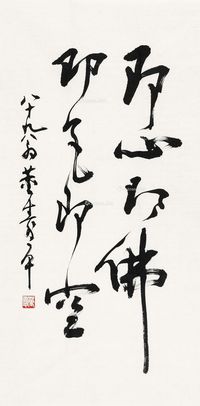 即心即佛
即色即空
八十九八翁董寿平